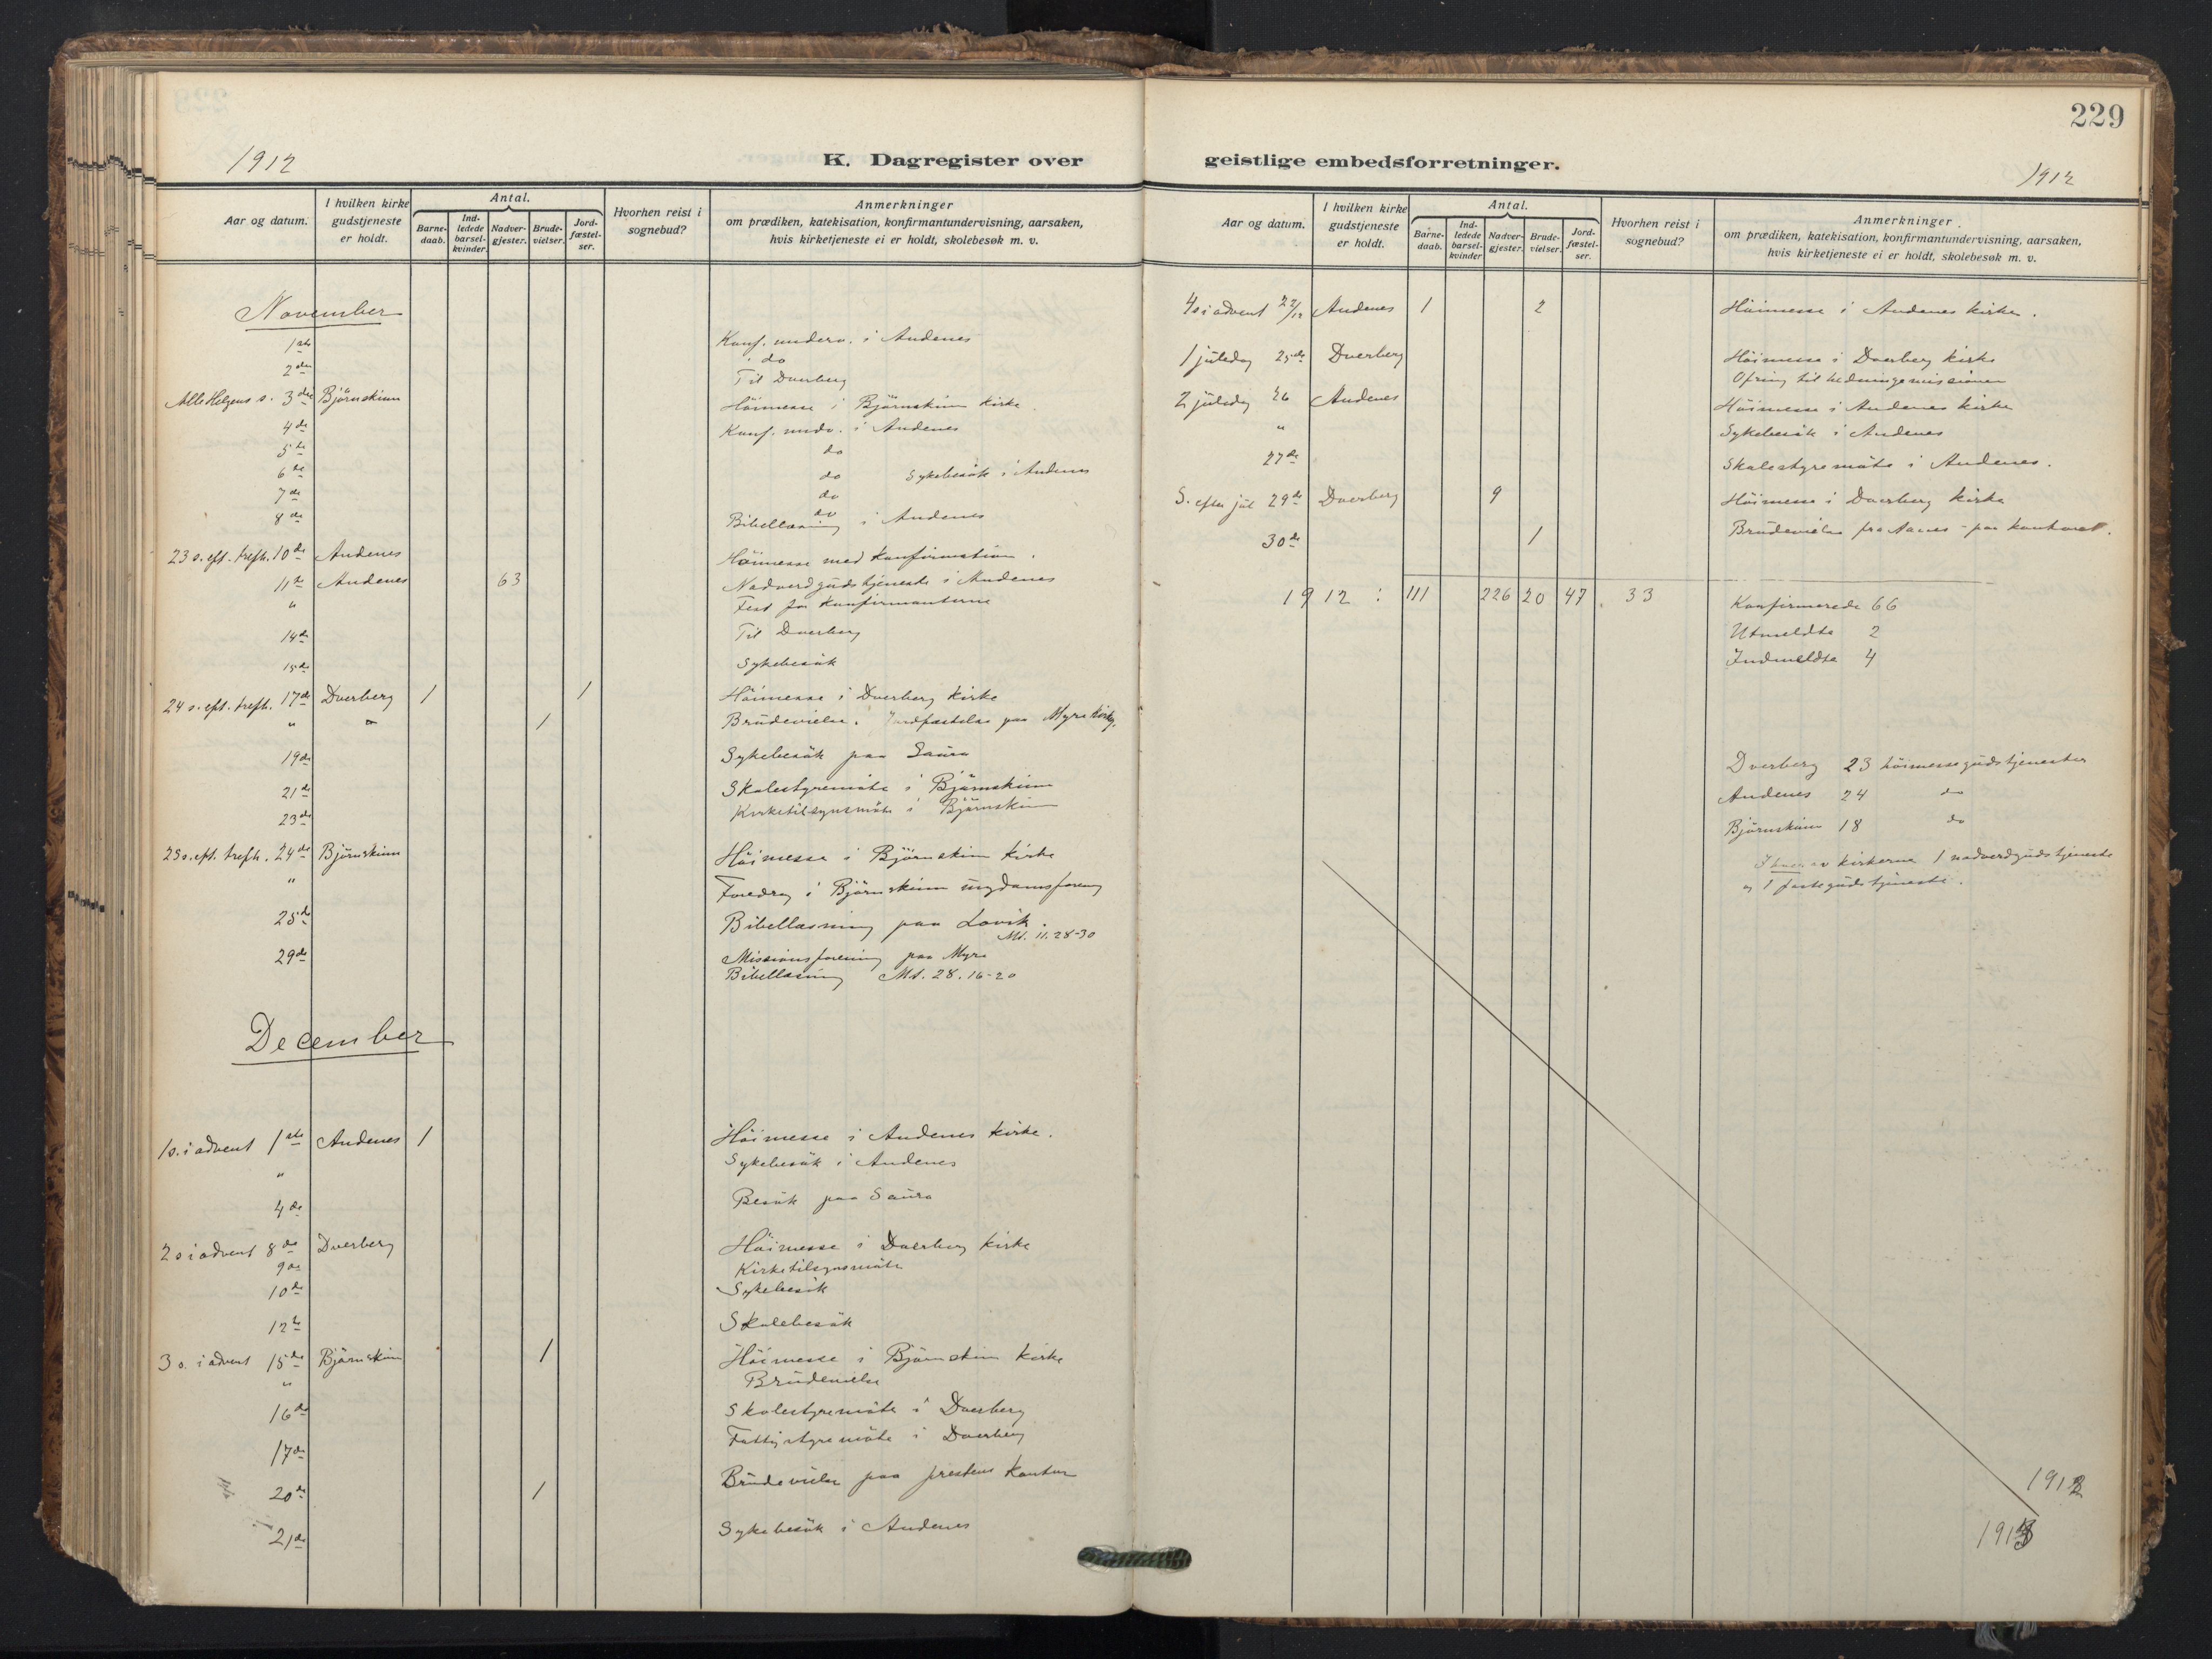 229
1912
K. Dagregister over
Aar og datum.
I hvilken kirke gudstjeneste er holdt.
Antal.
Barnedaab.
Indledede barselkvinder.
Nadvergjester.
Brudevielser.
Jordfæstelser.
Hvorhen reist i sognebud?
Anmerkninger
om prædiken, katekisation, konfirmantundervisning, aarsaken,
hvis kirketjeneste ei er holdt, skolebesøk m. v.
November
1ste Konf. underv. i Andenes
2den do
Til Dverberg
Alle Helgens s. 3die Björnskinn Höimesse i Björnskinn kirke
4de Konf. undv. i Andenes
5te do
6te do Sykebesök i Andenes
7de do
8de do
Bibellæsning i Andenes
23 s. eft. trefh. 10de Andenes Höimesse med konfirmation.
11te Andenes 63 Nadverdgudstjeneste i Andenes
" Fest for konfirmanterne
14de Til Dverberg
15de Sykebesök
24 s. eft. trefh. 17de Dverberg 1 1 Höimesse i Dverberg kirke
" " 1 Brudevielse. Jordfæstelse paa Myre kirkg.
19de Sykebesök paa Saura
21de Skolestyremöte i Björnskinn
23de Kirketilsynsmöte i Björnskinn
25 s. eft. trefh. 24de Björnskinn Höimesse i Björnskinn kirke
" Foredrag i Björnskinn ungdomsforening
25de Bibellæsning paa Lovik.
Mt. 11. 28-30
29de Missionsforening paa Myre
Bibellæsning Mt. 28. 16-20
December
1 s. i advent 1ste Andenes 1 Höimesse i Andenes kirke.
" Sykebesök i Andenes
4de Besök paa Saura
2 s i advent 8de Dverberg Höimesse i Dverberg kirke
9de Kirketilsynsmöte
10de Sykebesök
12te Skolebesök
3 s. i advent 15de Björnskinn 1 Höimesse i Björnskinn kirke
" Brudevielse
16de Skolestyremöte i Dverberg
17de Fattigstyremöte i Dverberg
20de 1 Brudevielse paa prestens kontor
21de Sykebesök i Andenes
geistlige embedsforretninger.
1912
Aar og datum.
I hvilken kirke gudstjeneste er holdt.
Antal.
Barnedaab.
Indledede barselkvinder
Nadvergjester.
Brudevielser.
Jordfæstelser.
Hvorhen reist i sognebud?
Anmerkninger
om prædiken, katekisation, konfirmantundervisning, aarsaken,
hvis kirketjeneste ei er holdt, skolebesøk m. v.
4 s i advent 22/12 Andenes 1 2 Höimesse i Andenes kirke.
1 juledag 25de Dverberg Höimesse i Dverberg kirke
Ofring til hedningemissionen
2 juledag 26 Andenes Höimesse i Andenes kirke
" Sykebesök i Andenes
27de Skolestyremöte i Andenes.
S. efter jul 29de Dverberg 9 Höimesse i Dverberg kirke
30de 1 Brudevielse fra - paa kontoret.
1912 : 111 226 20 47 33 Konfirmerede 66
Utmeldte 2
Indmeldte 4
Dverberg 23 höimessegudstjenester
Andenes 24 do
Björnskinn 18 do
I hver av kirkerne 1 nadverdgudstjeneste
og 1 fastegudstjeneste.
1912
1913